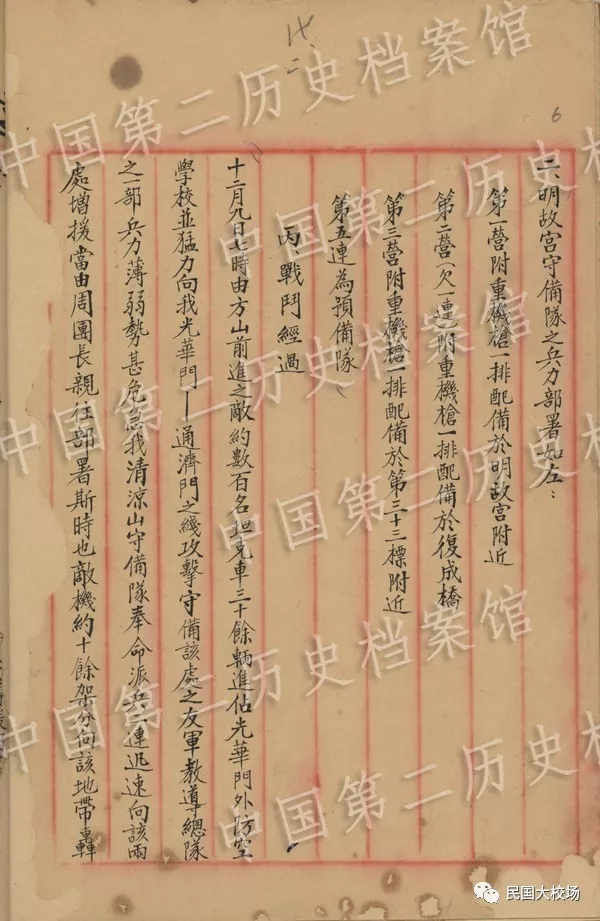 二、明故宮守備隊之兵力部署如左：
第一營附重機槍一排配備於明故宮附近
第二營（欠一連）附重機槍一排配備於復成橋
第三營附重機槍一排配備於第三十三標附近
第五連為預備隊
丙、戰鬥經過
十二月九日七時由方山前進之敵約數百名坦克車三十餘輛進佔光華門外防空
學校並猛力向我光華門——通濟門之綫攻擊守備該處之友軍教導總隊
之一部兵力薄弱勢甚危急我清涼山守備隊奉命派兵一連迅速向該兩
處增援當由周團長親往部署斯時也敵機約十餘架分向該地帶轟
6
中国第二历史档案馆
中国第二历史档案馆
中国第二历史档案馆
中国第二历史档
民国大校场